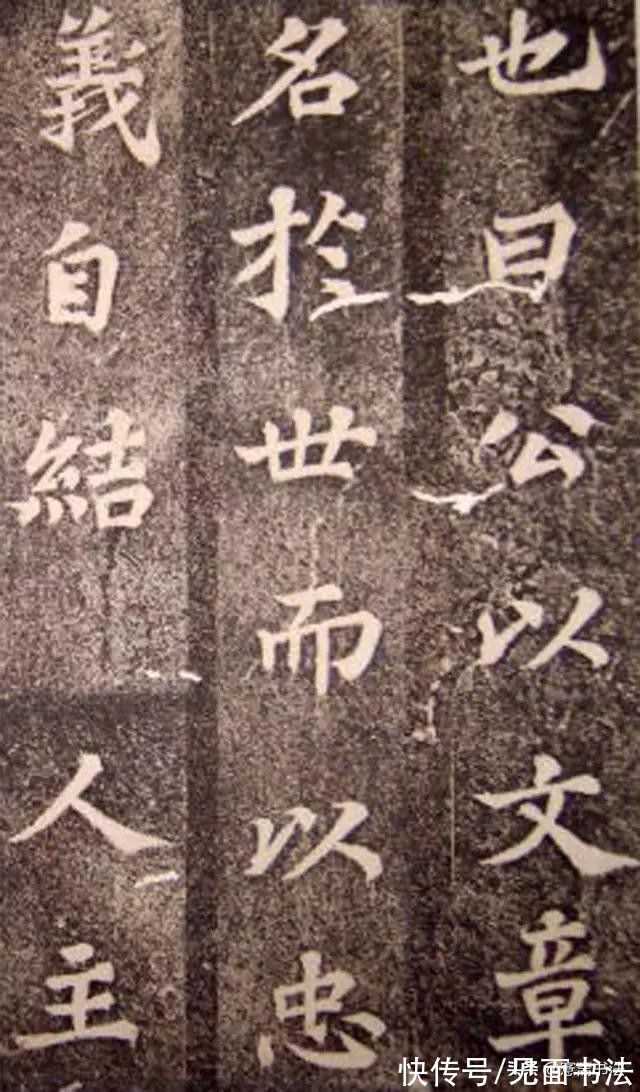 也曰公以文章
名於世而以忠
義自結人主
快传号/见面书法